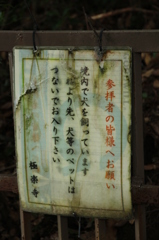 参拝者の皆様へお願い
境内で犬を飼っています
此より先、犬等のペットは
つないでお入り下さい
極楽寺